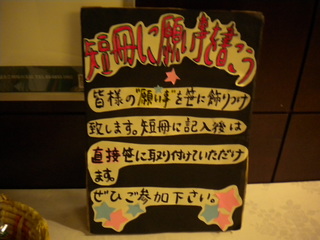 短冊に願い事を書こう
皆様の"願い事"を笹に飾りつけ
致します。短冊に記入後は
直接笹に取り付けていただけ
ます。
ぜひご参加下さい。